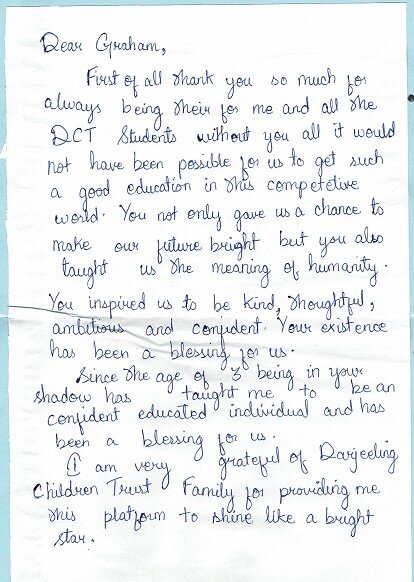 Dear Graham,
First of all thank you so much for
always being their for me and all the
DCT Students without you all it would
not have been possible for us to get such
a good education in this competetive
world. You not only gave us a chance to
make our future bright but you also
taught us the meaning of humanity.
You inspired us to be kind, thoughtful,
ambitious and confident. Your existence
has been a blessing for us.
Since the age of 3 being in your
shadow has taught me to be an
confident educated individual and has
been a blessing for us.
I am very grateful of Darjeeling
Children Trust Family for providing me
this platform to shine like a bright
star.